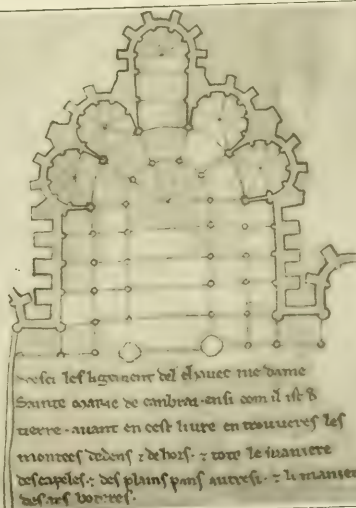 Vesci les ligement del chavec me dame
Sainte marie de canbrai · ensi com il ist de
tierre · avant en cest livre en trouveres les
montees dedens ⁊ dehors · ⁊ tote le maniere
des capeles · ⁊ des plains pans autresi · ⁊ li maniere
des ars boteres ·